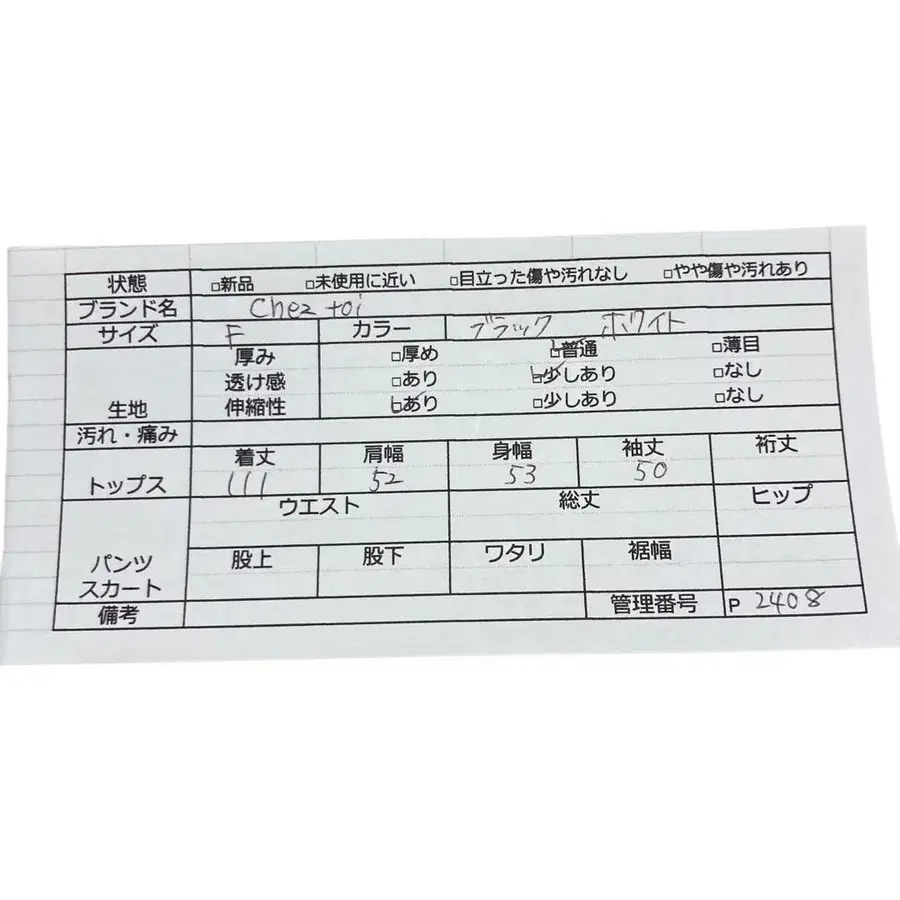 状態 □新品 □未使用に近い □目立った傷や汚れなし □やや傷や汚れあり
ブランド名 Chez toi
サイズ F カラー ブラック ホワイト
厚み □厚め □普通 □薄目
透け感 □あり □少しあり □なし
生地 伸縮性 □あり □少しあり □なし
汚れ・痛み
着丈 肩幅 身幅 袖丈 裄丈
トップス 111 52 53 50
ウエスト 総丈 ヒップ
股上 股下 ワタリ 裾幅
パンツ
スカート
備考 管理番号 P 2408